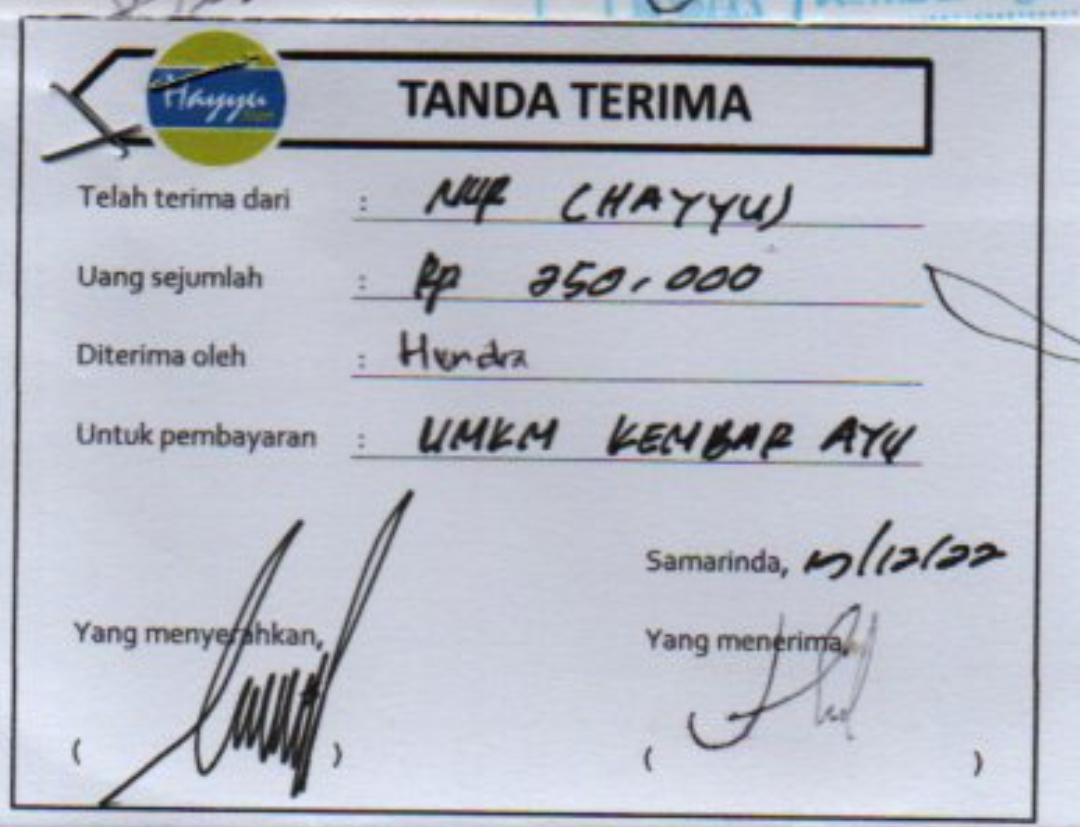 Hayyu
TANDA TERIMA
Telah terima dari : NUR (HAYYU)
Uang sejumlah : Rp 250.000
Diterima oleh : Hendra
Untuk pembayaran : UMKM KEMBAR AYU
Samarinda, /12/22
Yang menyerahkan, Yang menerima,
( ) ( )